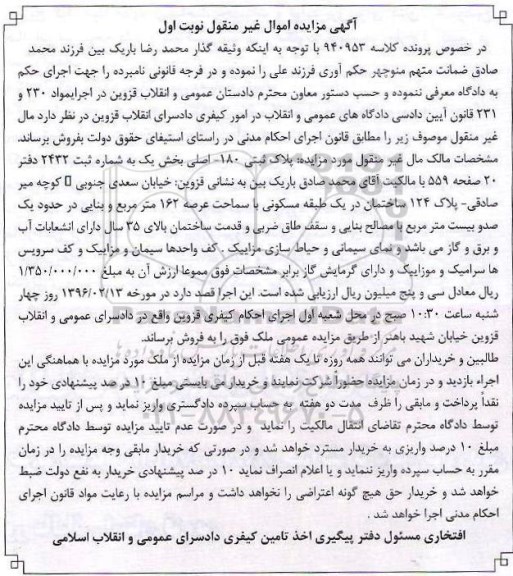 آگهی مزایده اموال غیر منقول نوبت اول
در خصوص پرونده کلاسه ۹۴۰۹۵۳ با توجه به اینکه وثیقه گذار محمد رضا باریک بین فرزند محمد
صادق ضمانت متهم منوچهر حکم آوری فرزند علی را نموده و در فرجه قانونی نامبرده را جهت اجرای حکم
به دادگاه معرفی ننموده و حسب دستور معاون محترم دادستان عمومی و انقلاب قزوین در اجرایمواد ۲۳۰ و
۲۳۱ قانون آیین دادسی دادگاه های عمومی و انقلاب در امور کیفری دادسرای انقلاب قزوین در نظر دارد مال
غیر منقول موصوف زیر را مطابق قانون اجرای احکام مدنی در راستای استیفای حقوق دولت بفروش برساند.
مشخصات مالک مال غیر منقول مورد مزایده: پلاک ثبتی ۱۸۰- اصلی بخش یک به شماره ثبت ۲۴۳۲ دفتر
۲۰ صفحه ۵۵۹ با مالکیت آقای محمد صادق باریک بین به نشانی قزوین: خیابان سعدی جنوبی کوچه میر
صادقی- پلاک ۱۲۴ ساختمان در یک طبقه مسکونی با سماحت عرصه ۱۶۲ متر مربع و بنایی در حدود یک
صدو بیست متر مربع با مصالح بنایی و سقف طاق ضربی و قدمت ساختمان بالای ۳۵ سال دارای انشعابات آب
و برق و گاز می باشد. و نمای سیمانی و حیاط سازی مزاییک . کف واحدها سیمان و مزاییک و کف سرویس
ها سرامیک و موزاییک و دارای گرمایش گاز برابر مشخصات فوق مموعا ارزش آن به مبلغ ۱/۳۵۰/۰۰۰/۰۰۰
ریال معادل سی و پنج میلیون ریال ارزیابی شده است. این اجرا قصد دارد در مورخه ۱۳۹۶/۰۲/۱۳ روز چهار
شنبه ساعت ۱۰:۳۰ صبح در محل شعبه اول اجرای احکام کیفری قزوین واقع در دادسرای عمومی و انقلاب
قزوین خیابان شهید باهنر از طریق مزایده عمومی ملک فوق را به فروش برساند.
طالبین و خریداران می توانند همه روزه تا یک هفته قبل از زمان مزایده از ملک مورد مزایده با هماهنگی این
اجراء بازدید و در زمان مزایده حضوراً شرکت نمایند و خریدار می بایستی مبلغ ۱۰ در صد پیشنهادی خود را
نقداً پرداخت و مابقی را ظرف مدت دو هفته به حساب سپرده دادگستری واریز نماید و پس از تایید مزایده
توسط دادگاه محترم تقاضای انتقال مالکیت را نماید و در صورت عدم تایید مزایده توسط دادگاه محترم
مبلغ ۱۰ درصد واریزی به خریدار مسترد خواهد شد و در صورتی که خریدار مابقی وجه مزایده را در زمان
مقرر به حساب سپرده واریز ننماید و یا اعلام انصراف نماید ۱۰ در صد پیشنهادی خریدار به نفع دولت ضبط
خواهد شد و خریدار حق هیچ گونه اعتراضی را نخواهد داشت و مراسم مزایده با رعایت مواد قانون اجرای
احکام مدنی اجرا خواهد شد .
افتخاری مسئول دفتر پیگیری اخذ تامین کیفری دادسرای عمومی و انقلاب اسلامی